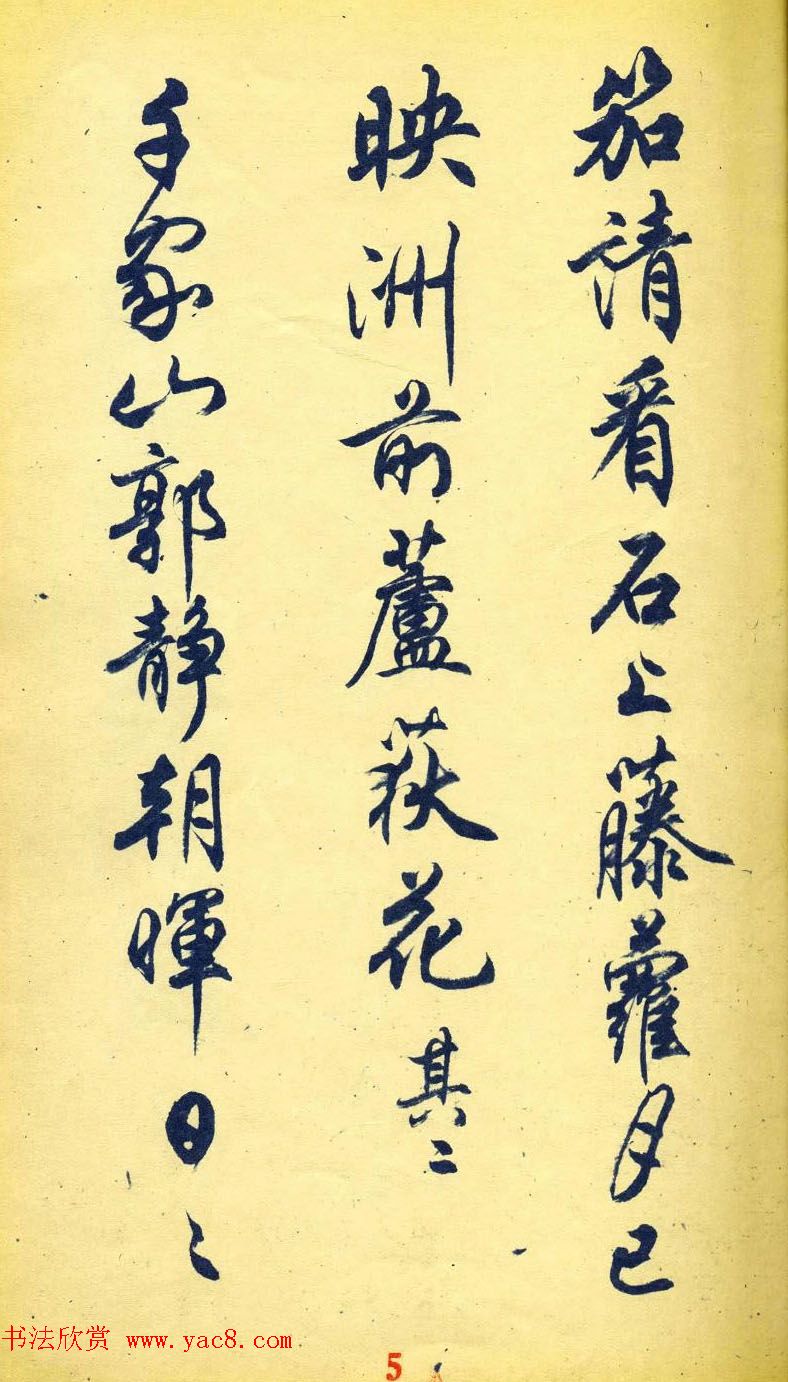 笳請看石上藤蘿月已
映洲前蘆荻花其二
千家山郭靜朝暉日〻
书法欣赏 www.yac8.com
5